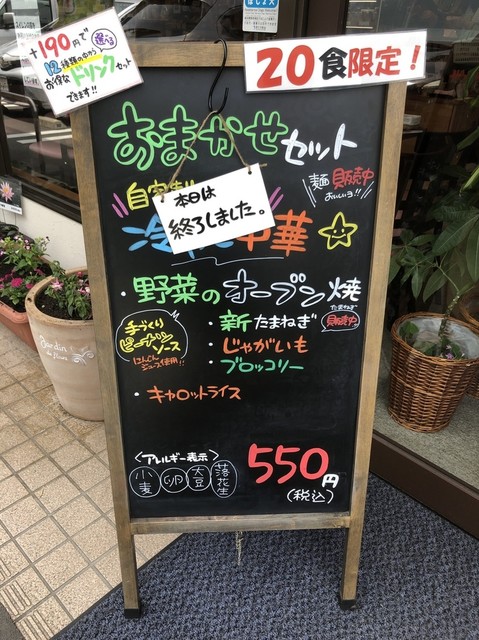 +190円で
選べる
12種類の中から
お得なドリンクセット
できます!!
20食限定!
おまかせセット
自家製
麺 販売中
おいしいョ!!
本日は
終了しました。
冷 中華
・野菜のオーブン焼
・新たまねぎ
たまねぎ
販売中
手づくり
ピーナッツ
ソース
にんじん
ジュース使用!!
・じゃがいも
・ブロッコリー
・キャロットライス
<アレルギー表示>
小麦 卵 大豆 落花生
550円
(税込)
Jardin